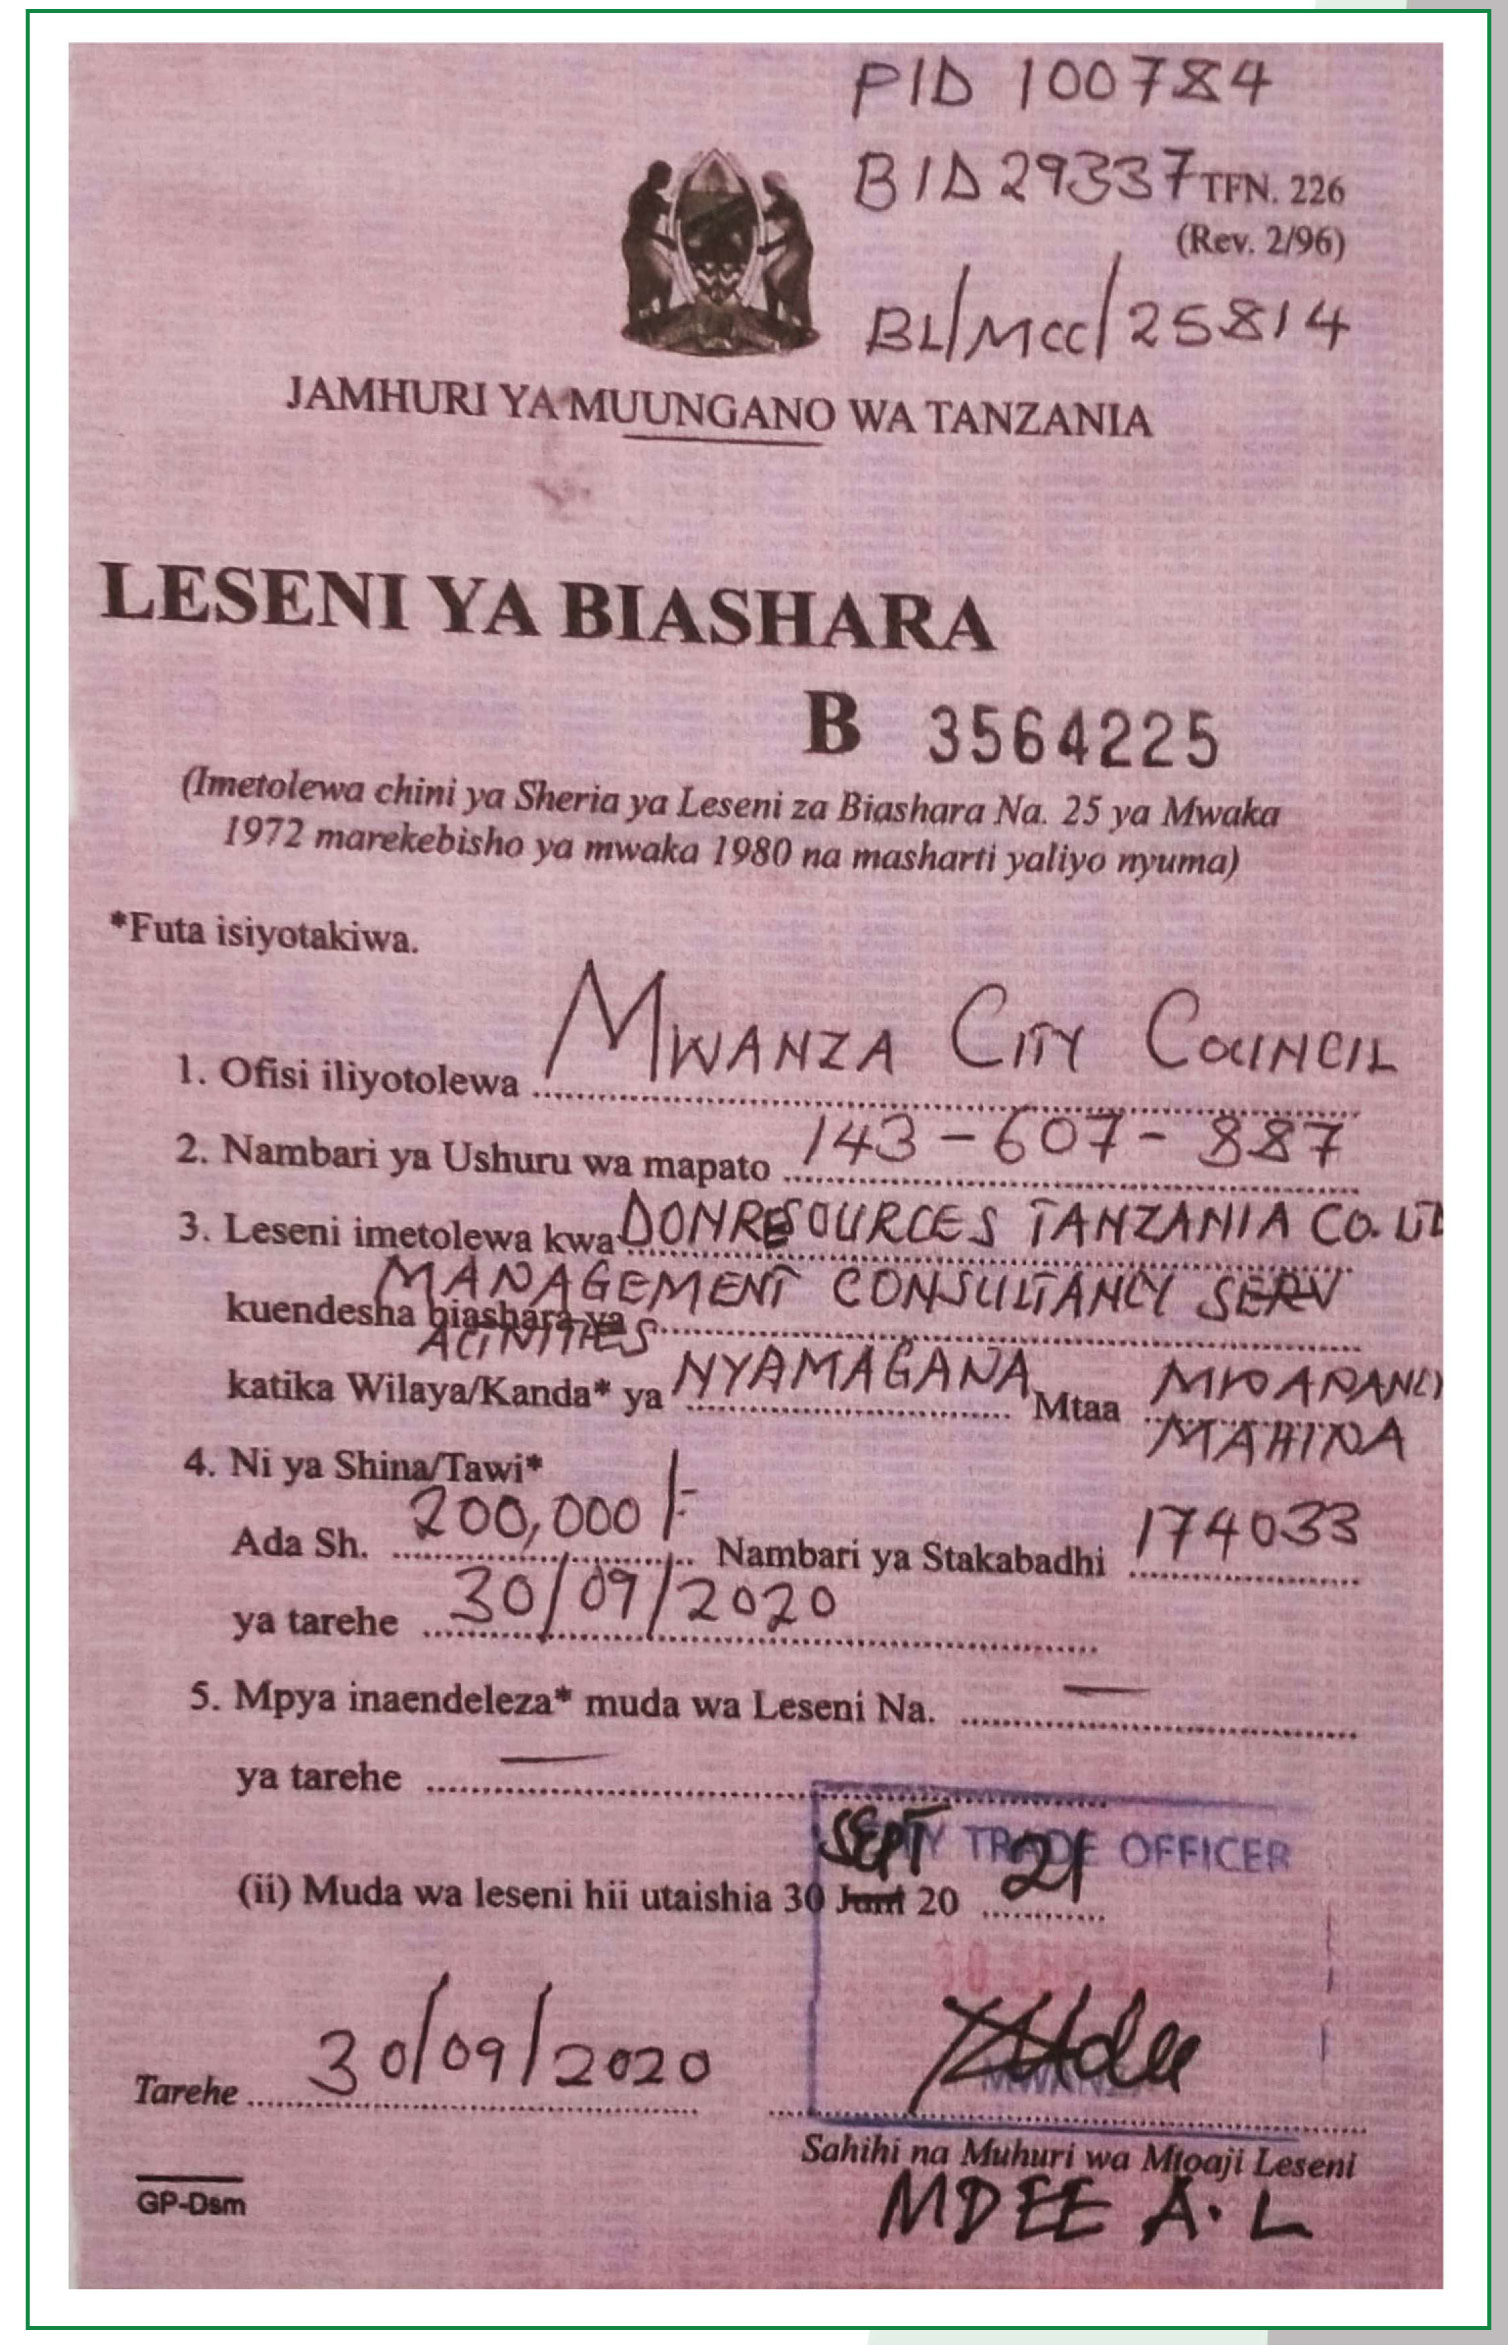 PID 100784
BID 29337 TFN. 226
(Rev. 2/96)
BL/MCC/25814
JAMHURI YA MUUNGANO WA TANZANIA
LESENI YA BIASHARA
B 3564225
(Imetolewa chini ya Sheria ya Leseni za Biashara Na. 25 ya Mwaka
1972 marekebisho ya mwaka 1980 na masharti yaliyo nyuma)
*Futa isiyotakiwa.
1. Ofisi iliyotolewa MWANZA CITY COUNCIL
2. Nambari ya Ushuru wa mapato 143-607-887
3. Leseni imetolewa kwa DONRESOURCES TANZANIA CO. LTD
MANAGEMENT CONSULTANCY SERV
kuendesha biashara ya
katika Wilaya/Kanda* ya NYAMAGANA Mtaa
MAHINA
4. Ni ya Shina/Tawi*
Ada Sh. 200,000/- Nambari ya Stakabadhi 174033
ya tarehe 30/09/2020
5. Mpya inaendeleza* muda wa Leseni Na. —
ya tarehe —
SEPT TRADE OFFICER
(ii) Muda wa leseni hii utaishia 30 Juni 20 21
MWANZA
Tarehe 30/09/2020
Sahihi na Muhuri wa Mtoaji Leseni
GP-Dsm
MDEE A. L